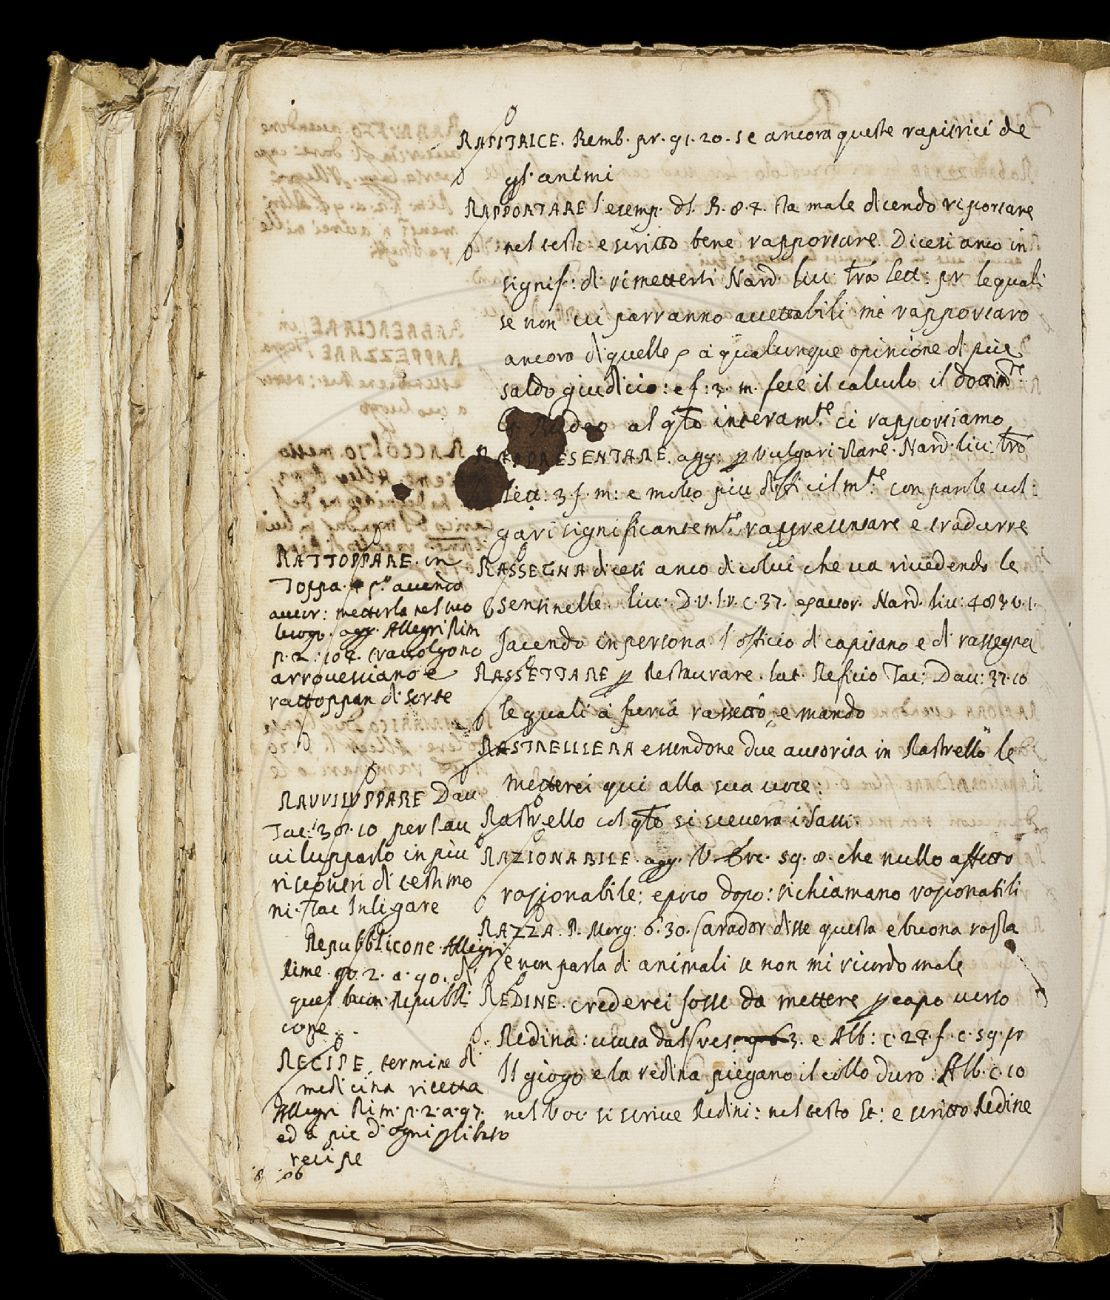 RAPITRICE. Bemb. pr. 91. 20. se ancora queste rapitrici de
gl' animi
RAPPORTARE l'esemp. di R. 8. 4. sta male dicendo riportare
nel testo e scritto bene rapportare. Dicesi anco in
signif: di rimettersi Nard. liv: tra lett: pr le quali
se non vi parranno accettabili mi rapportaro
ancora di quelle a qualunque opinione di piu
saldo giudicio: e f: 3. m. fece il calculo il
al qto interamte ci rapportiamo
RAPPRESENTARE. agg: Vulgarizare. Nard. liv: tra
lett: 3. f. m: e molto piu difficilmte con parole vol:
gari significantemte rappresentare e tradurre
RASSEGNA dicesi anco di colui che va rivedendo le
sentinelle. liv: D. V. l. V. c. 37. Nard. liv: 483 v. 1.
facendo in persona l'officio di capitano e di rassegna
RASSETTARE p Restaurare. lat. Reficio Tac: Dav: 37. 10
le quali a furia rassettò, e mando
RASTRELLIERA essendone due autorita in Rastrello le
metterei qui alla sua voce:
Rastrello col qto si scevera i sassi
RAZIONABILE. agg. V. sq. 8. che nullo affetto
rasionabile; e poco dopo: si chiamano rasionabili
RAZZA. P. Morg: 6. 30. disse questa e buona rassa
e non parla di animali se non mi ricordo male
REDINE. crederei fosse da mettere p capo verso
Redina: 63. e Alb: c. 24. f. c. 59. pr
Il giogo e la redina piegano il collo duro. Alb. c. 10
nel Voc. si scrive Redini: nel testo St: e scritto Redine
RATTOPPARE. in
Toppa. avendo
autor: metterla nel suo
luogo. agg. Allegri Rim
p. 2. : 102. ravvolgono
arrovesciano e
rattoppan di sorte
RAVVILUPPARE Dav
Tac: 301. 10 per rav
vilupparlo in più
risponeri di testimo
ni. Tac Inligare
Repubblicone Allegri
Rime. p. 2. a. 90. di
quel buon Republi
cone.
RECIPE. termine di
medicina ricetta
Allegri Rim. p. 2. a. 97.
ed a pie d'ogni
recipe
106